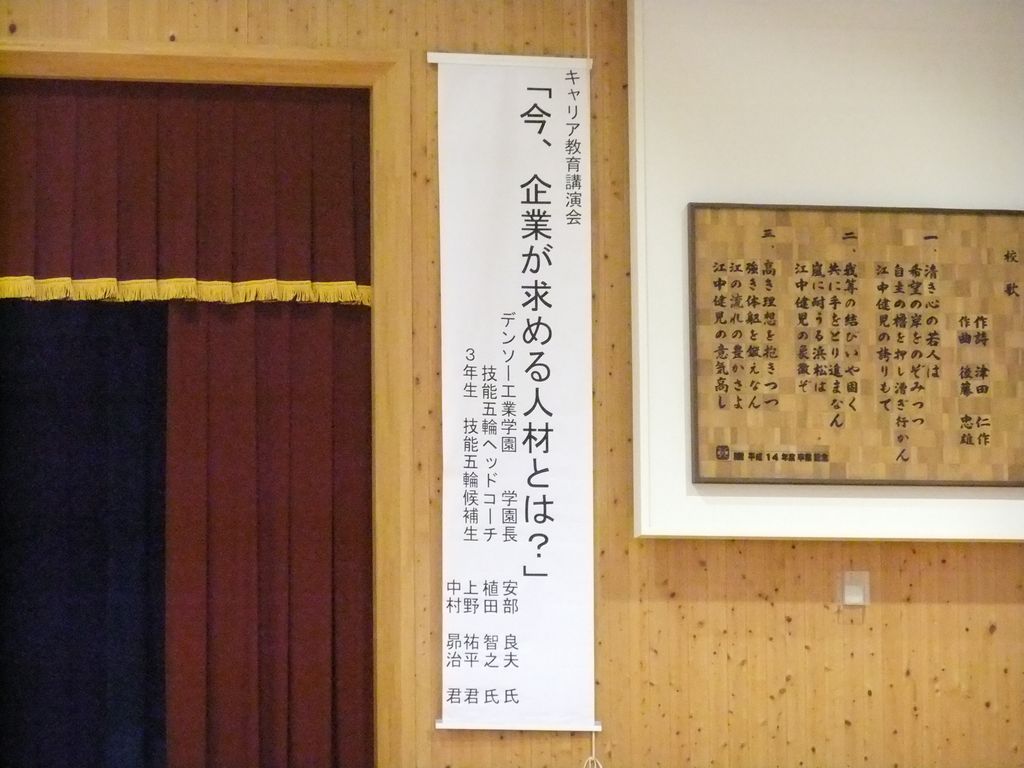 キャリア教育講演会
「今、企業が求める人材とは？」
デンソー工業学園　学園長　安部　良夫　氏
技能五輪ヘッドコーチ　植田　智之　氏
３年生　技能五輪候補生　上野　祐平　君
中村　昴治　君
校歌
作詩　津田　仁作
作曲　後藤　忠雄
一、清き心の若人は
希望の岸をのぞみつつ
自主の櫓を押し漕ぎ行かん
江中健児の誇りもて
二、我等の結びいや固く
共に手をとり進まなん
嵐に耐うる浜松は
江中健児の象徴ぞ
三、高き理想を抱きつつ
強き体軀を鍛えなん
江の流れの豊かさよ
江中健児の意気高し
平成14年度卒業記念